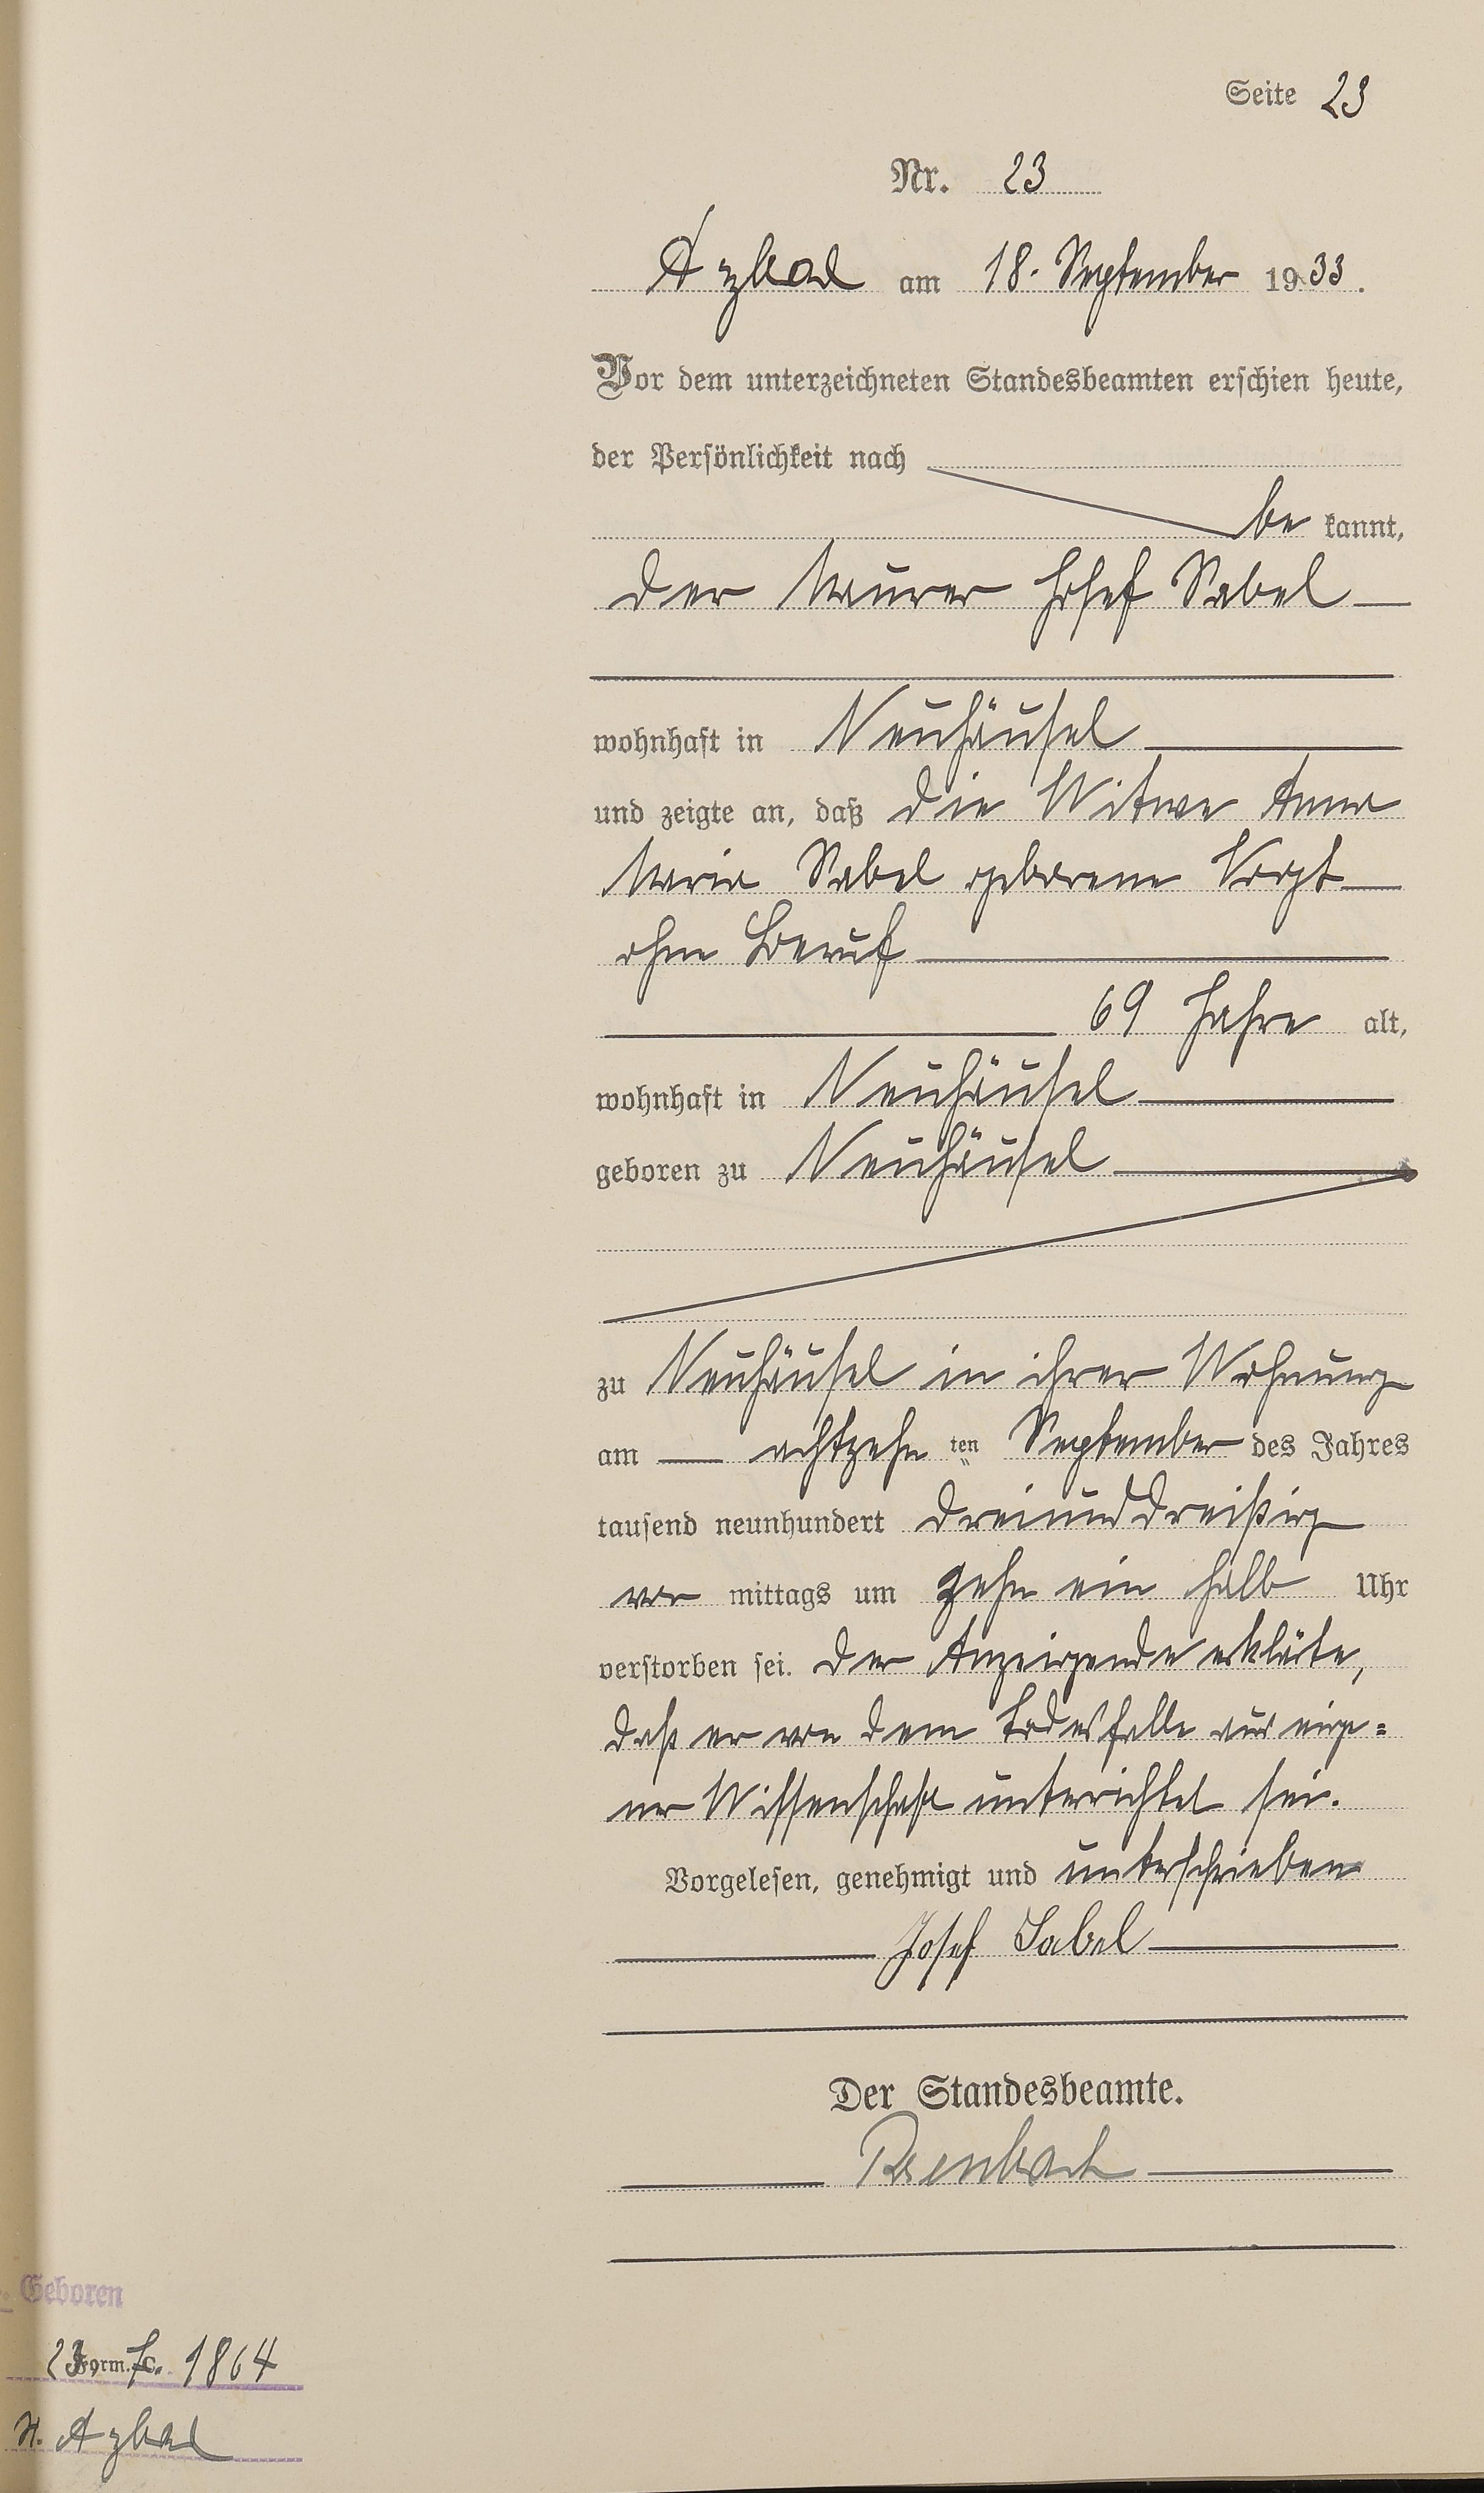 Seite 23
Nr. 23
Arzbach am 18. September 1933.
Vor dem unterzeichneten Standesbeamten erschien heute,
der Persönlichkeit nach
be kannt,
der Maurer Josef Sabel
wohnhaft in Neuhäusel
und zeigte an, daß die Witwe Anna
Maria Sabel geborene Vogt
ohne Beruf
69 Jahre alt,
wohnhaft in Neuhäusel
geboren zu Neuhäusel
zu Neuhäusel in ihrer Wohnung
am achtzehn ten September des Jahres
tausend neunhundert dreiunddreißig
vor mittags um zehn ein halb Uhr
verstorben sei. Der Anzeigende erklärte,
daß er von dem Todesfalle aus eige=
ner Wissenschaft unterrichtet sei.
Vorgelesen, genehmigt und unterschrieben
Josef Sabel
Der Standesbeamte.
Geboren
Form. C. 1864